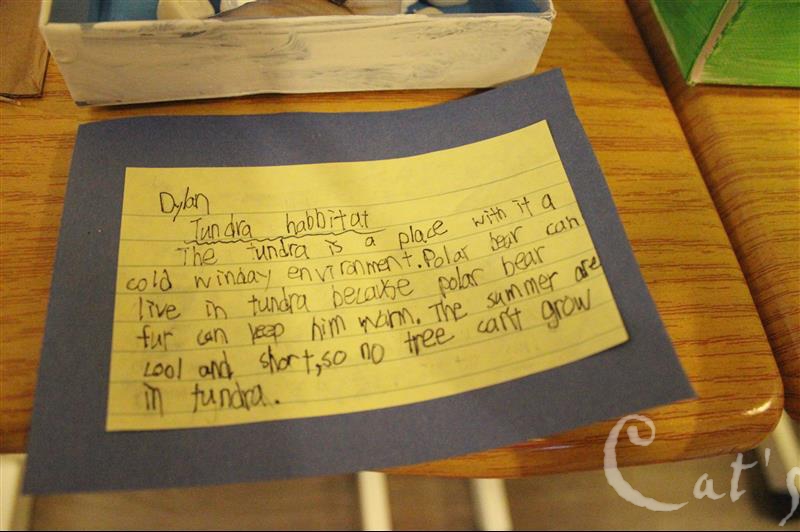 Dylan
Tundra habbitat
The tundra is a place with it a
cold winday environment. Polar bear can
live in tundra because polar bear
fur can keep him warm. The summer are
cool and short, so no tree can't grow
in tundra.
Cat's